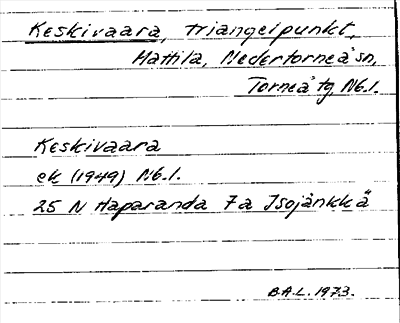 Keskivaara, triangelpunkt,
Mattila, Nedertorneå sn,
Torneå tg Nb.l.
Keskivaara
ek (1949) Nb.l.
25 N Haparanda 7a Isojänkkä
B.A.L. 1973.